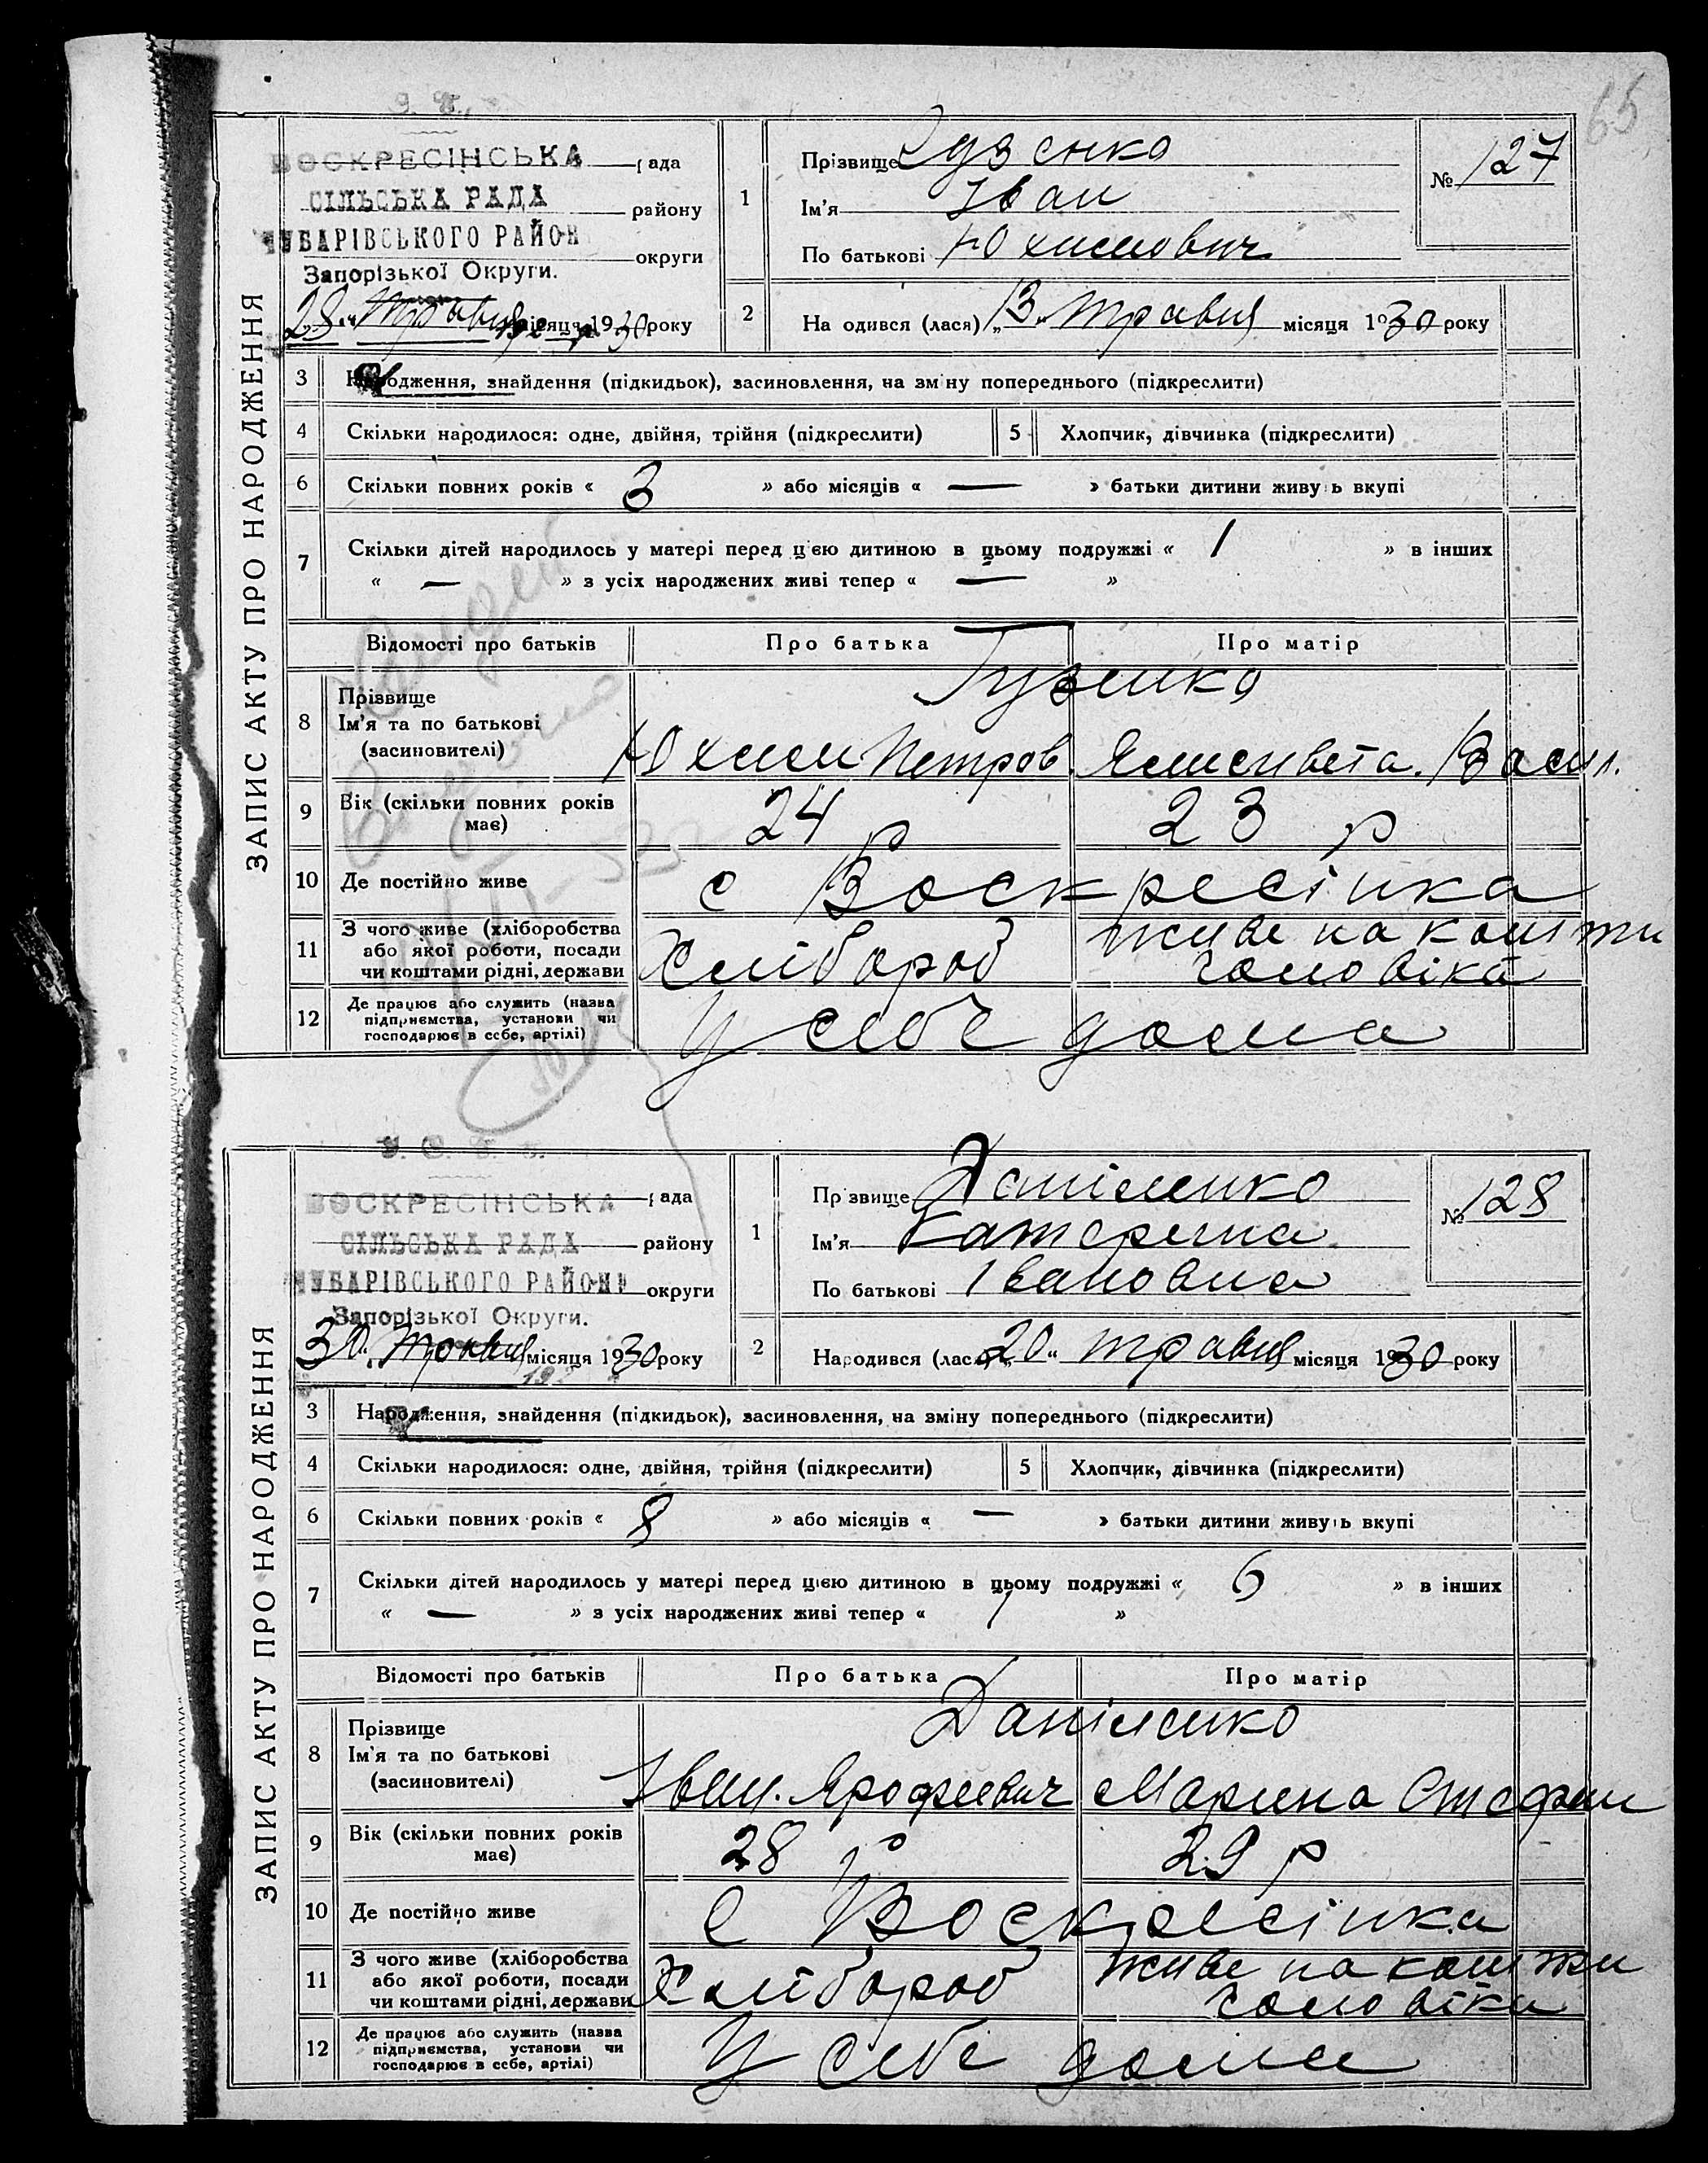 65
ЗАПИС АКТУ ПРО НАРОДЖЕННЯ
ВОСКРЕСІНСЬКА рада
СІЛЬСЬКА РАДА району
ЧУБАРІВСЬКОГО РАЙОН округи
Запорізької Округи.
28 " Травня місяця 1930 року
1 Прізвище Гузенко
Ім'я Іван
По батькові Юхимович
№ 127
2 На одився (лася) „13 " травня місяця 1930 року
3 Народження, знайдення (підкидьок), засиновлення, на зміну попереднього (підкреслити)
4 Скільки народилося: одне, двійня, трійня (підкреслити) 5 Хлопчик, дівчинка (підкреслити)
6 Скільки повних років « 3 » або місяців « — » батьки дитини живуть вкупі
7 Скільки дітей народилось у матері перед цією дитиною в цьому подружжі « 1 » в інших
« — » з усіх народжених живі тепер « — »
Відомості про батьків Про батька Про матір
8 Прізвище Гузенко
Ім'я та по батькові
(засиновителі) Юхим Петров. Елисивета. Васил.
9 Вік (скільки повних років має) 24 р 23 р
10 Де постійно живе с Воскресінка
11 З чого живе (хліборобства
або якої роботи, посади
чи коштами рідні, держави Хлібороб живе на кошти чоловіка
12 Де працює або служить (назва
підприємства, установи чи
господарює в себе, артілі) У себе дома
ЗАПИС АКТУ ПРО НАРОДЖЕННЯ
ВОСКРЕСІНСЬКА рада
СІЛЬСЬКА РАДА району
ЧУБАРІВСЬКОГО РАЙОНУ округи
Запорізької Округи.
30 " Травня місяця 1930 року
1 Прізвище Даніленко
Ім'я Катерина
По батькові Івановна
№ 128
2 Народився (лася) „20 " травня місяця 1930 року
3 Народження, знайдення (підкидьок), засиновлення, на зміну попереднього (підкреслити)
4 Скільки народилося: одне, двійня, трійня (підкреслити) 5 Хлопчик, дівчинка (підкреслити)
6 Скільки повних років « 8 » або місяців « — » батьки дитини живуть вкупі
7 Скільки дітей народилось у матері перед цією дитиною в цьому подружжі « 6 » в інших
« — » з усіх народжених живі тепер « »
Відомості про батьків Про батька Про матір
8 Прізвище Даніленко
Ім'я та по батькові
(засиновителі) Іван. Ярофеевич Марина Стефан
9 Вік (скільки повних років має) 28 р 29 р
10 Де постійно живе с Воскресінка
11 З чого живе (хліборобства
або якої роботи, посади
чи коштами рідні, держави Хлібороб живе на кошти чоловіка
12 Де працює або служить (назва
підприємства, установи чи
господарює в себе, артілі) У себе дома